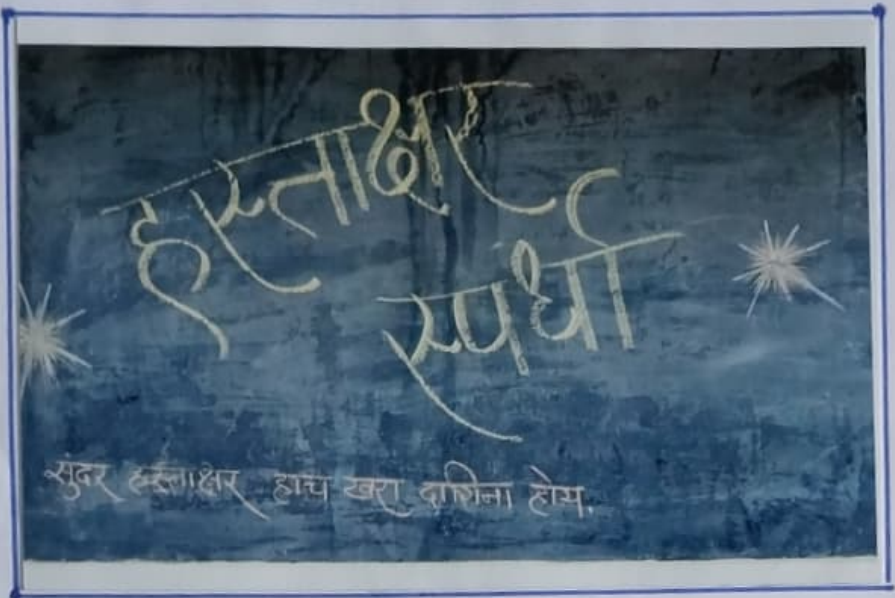 हस्ताक्षर
स्पर्धा
सुंदर हस्ताक्षर हाच खरा दागिना होय.